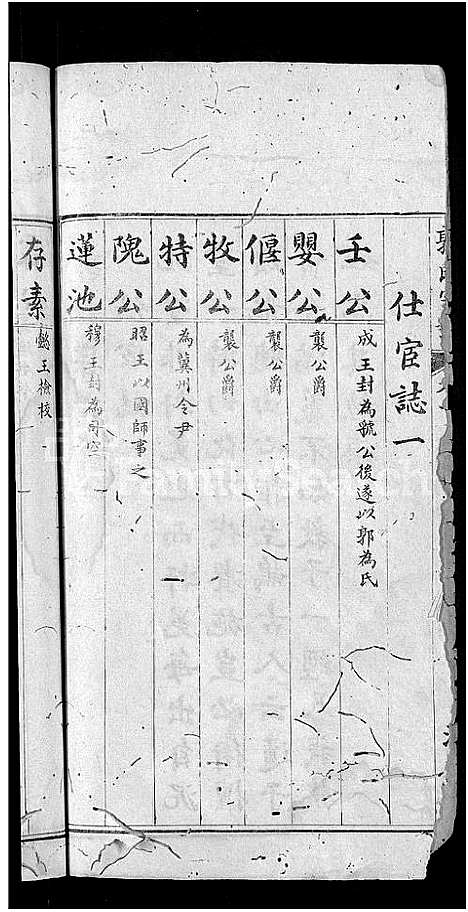 仕宦誌一
壬公 成王封為虢公後遂以郭為氏
嬰公 襲公爵
偃公 襲公爵
牧公 襲公爵
特公 為冀州令尹
隗公 昭王以國師事之
蓮池 穆王封為司空
存素 懿王檢校